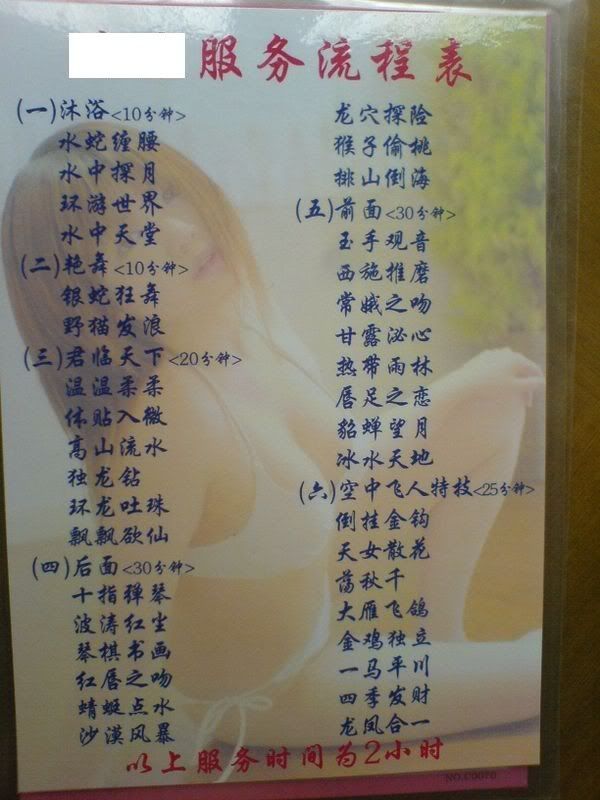 服务流程表
(一)沐浴<10分钟>
水蛇缠腰
水中探月
环游世界
水中天堂
(二)艳舞<10分钟>
银蛇狂舞
野猫发浪
(三)君临天下<20分钟>
温温柔柔
体贴入微
高山流水
独龙钻
环龙吐珠
飘飘欲仙
(四)后面<30分钟>
十指弹琴
波涛红尘
琴棋书画
红唇之吻
蜻蜓点水
沙漠风暴
龙穴探险
猴子偷桃
排山倒海
(五)前面<30分钟>
玉手观音
西施推磨
常娥之吻
甘露泌心
热带雨林
唇足之恋
貂蝉望月
冰水天地
(六)空中飞人特技<25分钟>
倒挂金钩
天女散花
荡秋千
大雁飞鸽
金鸡独立
一马平川
四季发财
龙凤合一
以上服务时间为2小时
NO.C0070